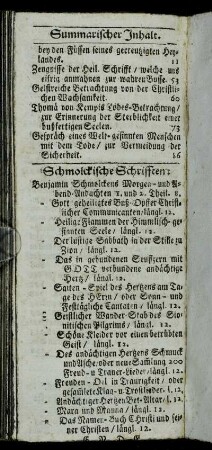 Summarischer Inhalt.
bey den Füssen seines gecreutzigten Hey-
landes. 11
Zeugnisse der Heil. Schrifft, welche uns
eifrig anmahnen zur wahren Busse. 53
Geistreiche Betrachtung von der Christli-
chen Wachsamkeit. 60
Thomä von Kempis Todes-Betrachtung,
zur Erinnerung der Sterblichkeit einer
bußfertigen Seelen. 73
Gespräch eines Welt-gesinnten Menschen
mit dem Tode, zur Vermeidung der
Sicherheit. 16
Schmolckische Schrifften:
Benjamin Schmolckens Morgen- und A-
bend-Andachten 1. und 2. Theil. 8.
- Gott geheiligtes Buß-Opfer Christli-
cher Communicanten/ längl. 12.
- Heilige Flammen der Himmlisch-ge-
sinnten Seele/ längl. 12.
- Der lustige Sabbath in der Stille zu
Zion/ längl. 12.
- Das in gebundenen Seufzern mit
GOTT verbundene andächtige
Hertz/ längl. 12.
- Saiten-Spiel des Hertzens am Ta-
ge des HErrn/ oder Sonn- und
Festtägliche Cantaten/ längl. 12.
- Geistlicher Wander-Stab des Sio-
nitischen Pilgrims/ längl. 12.
- Schöne Kleider vor einen betrübten
Geist/ längl. 12.
- Des andächtigen Hertzens Schmuck
und Asche/ oder neue Samlung 200
Freud- u Trauer-Lieder/ längl. 12,
- Freuden-Oel in Traurigkeit/ oder
gesamlete Klag- u Trostlieder. l. 12,
- Andächtiger Hertzen Bet-Altar/ l. 12,
- Mara und Manna/ längl. 12.
- Das Namen-Buch Christi und sei-
ner Christen/ längl. 12.